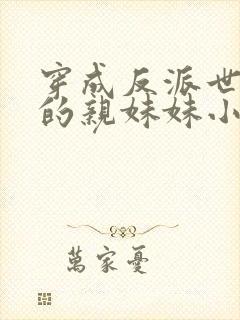 穿成反派世
的親妹妹小
萬家憂